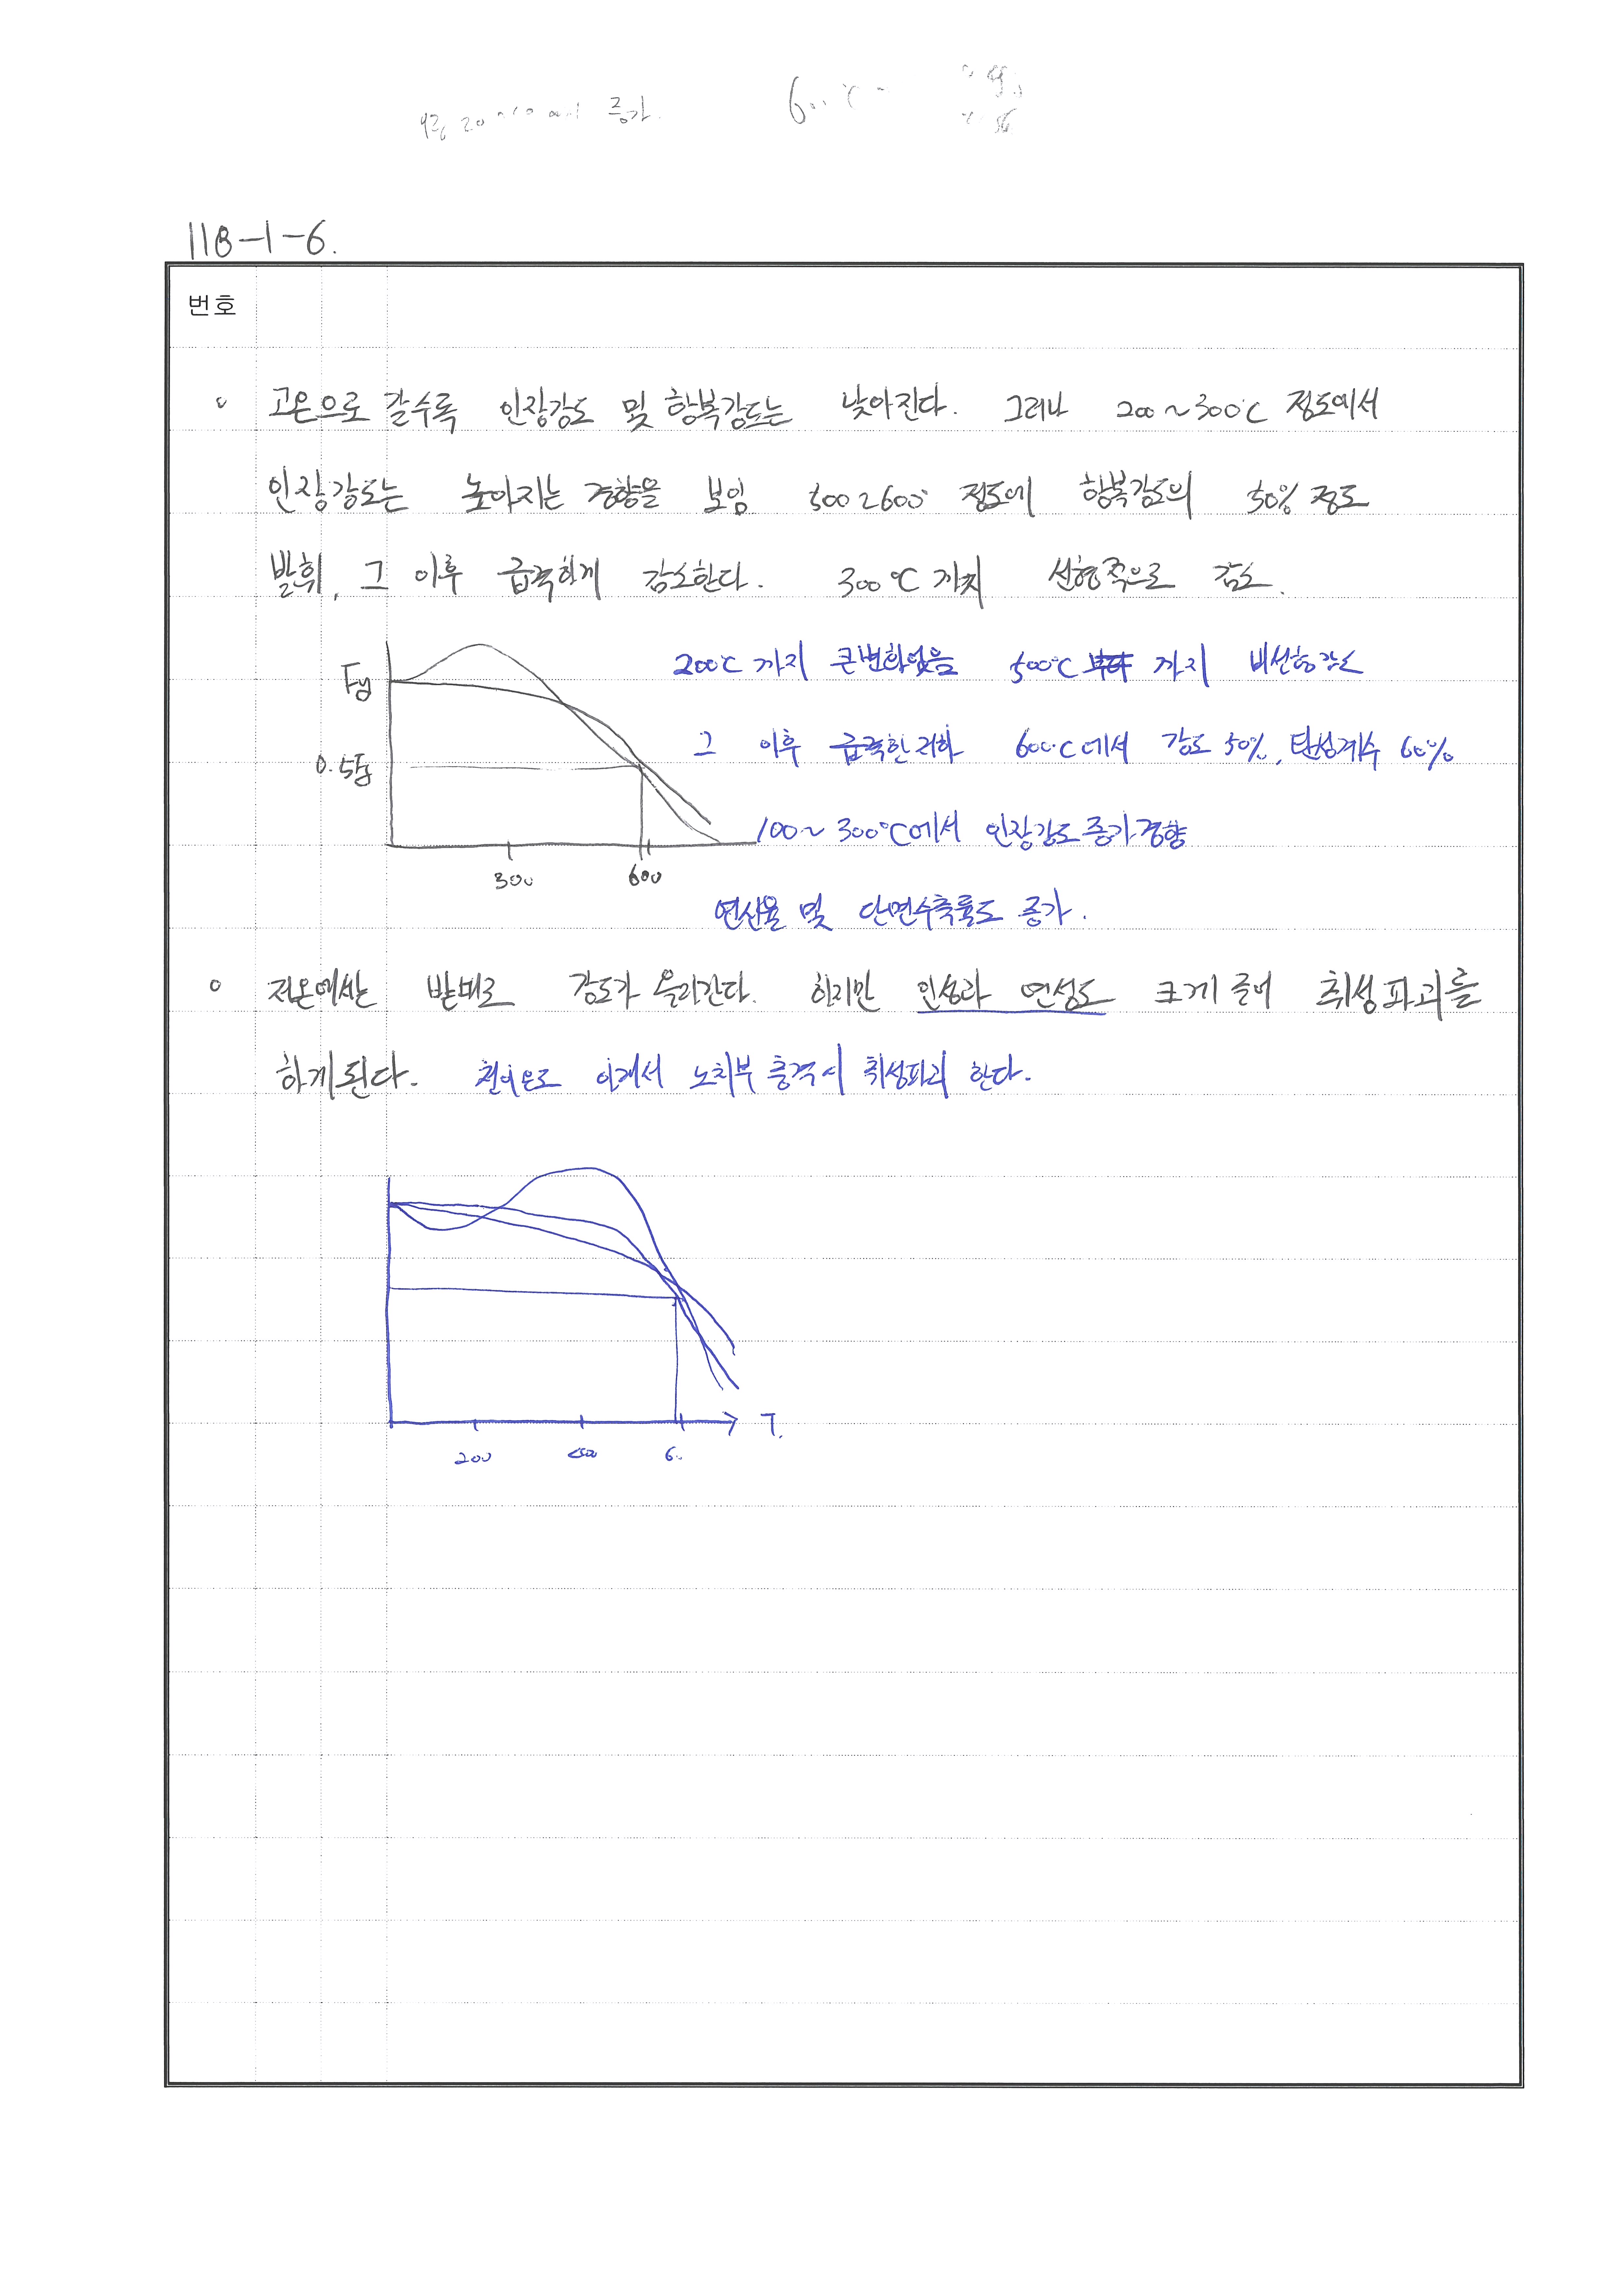 증가.
118-1-6.
번호
o 고온으로 갈수록 인장강도 및 항복강도는 낮아진다. 그러나 200~300℃ 정도에서
인장강도는 높아지는 경향을 보임 500~600° 정도에 항복강도의 50% 정도
발휘, 그 이후 급격하게 감소한다. 300℃ 까지 선형적으로 감소.
Fy
200℃ 까지 큰변화없음 500℃ 까지 비선형감소
0.5Fy
그 이후 급격한저하 600℃에서 강도 50%, 탄성계수 60%
100~300℃에서 인장강도증가경향
300 600
연신율 및 단면수축률도 증가.
o 저온에서는 반대로 강도가 올라간다. 하지만 인성과 연성도 크게 줄어 취성파괴를
하게된다. 천이온도 이하에서 노치부 충격시 취성파괴 한다.
T.
200 400